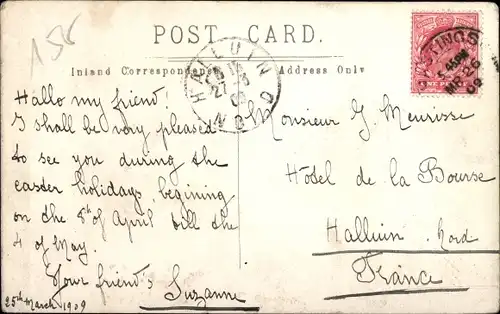 158
POST CARD.
Inland Correspondence
Address Only
HALLUIN
NORD
TINGS
MR 26
09
Hallo my friend!
I shall be very pleased
to see you during the
easter holidays, begining
on the 8th of April till the
4 of May.
Your friend's Suzanne
25th March 1909
Monsieur G. Meurisse
Hôtel de la Bourse
Halluin. Nord
France